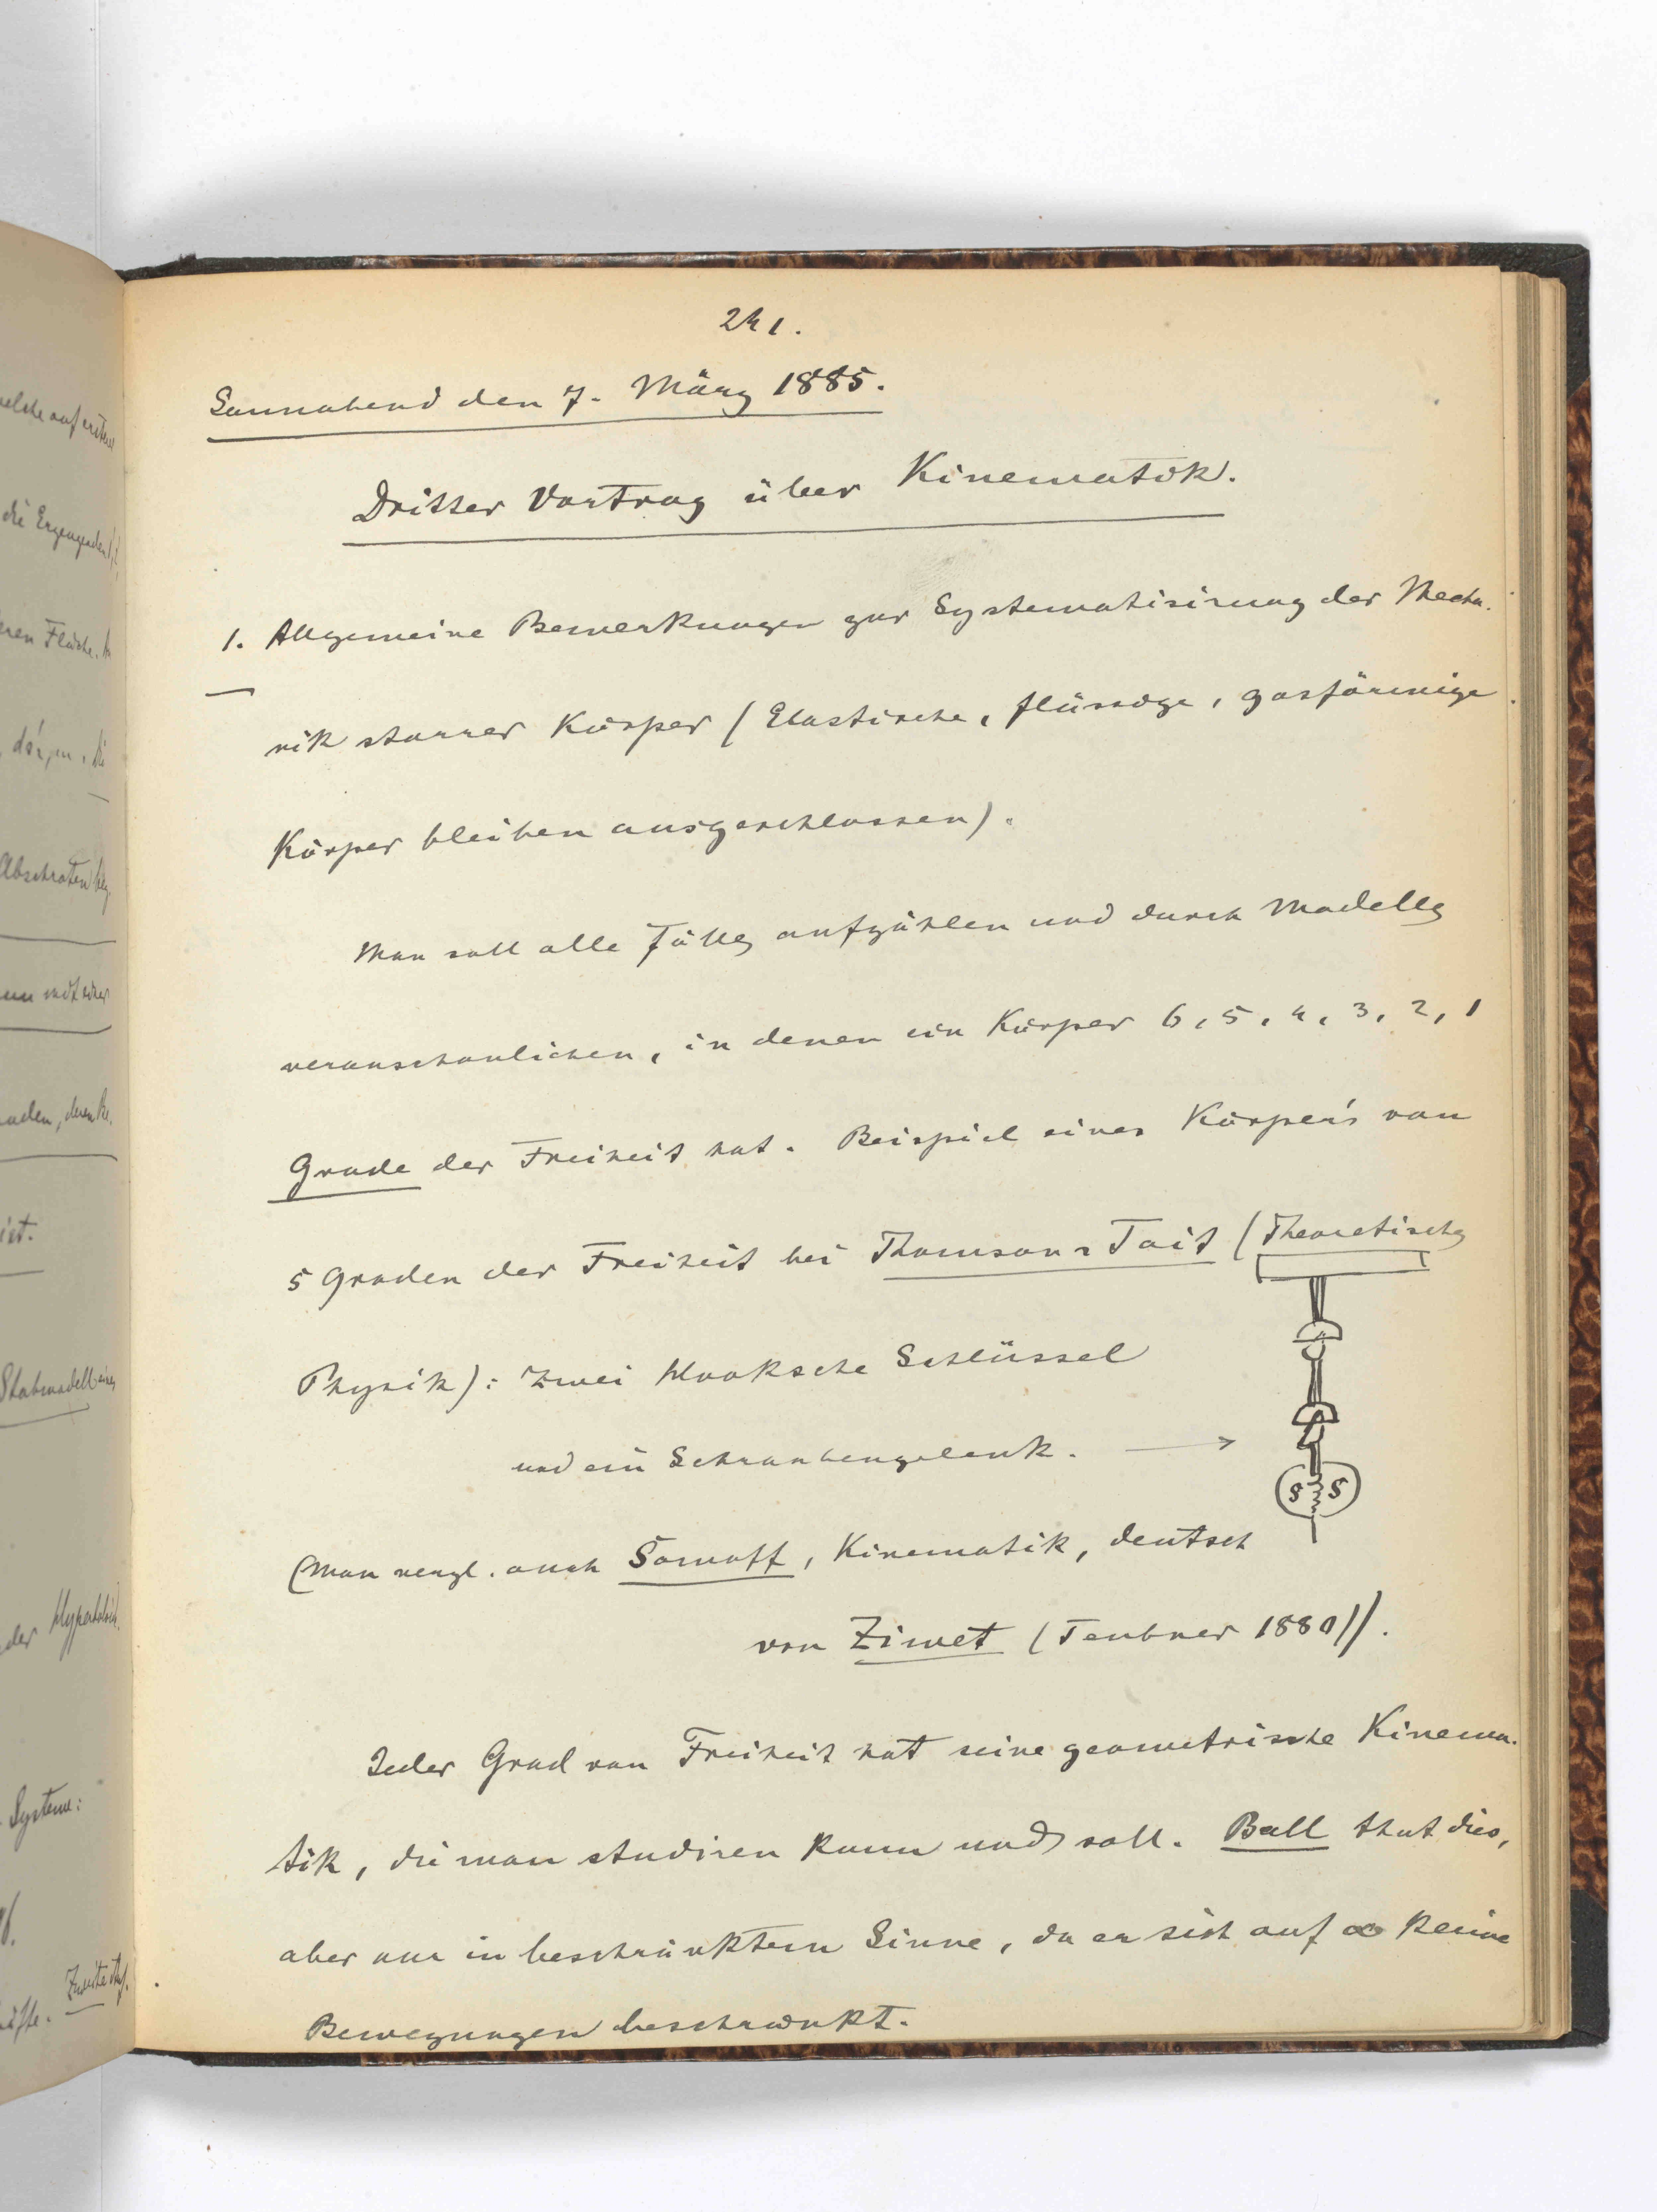 241.
Sonnabend den 7. März 1885.
Dritter Vortrag über Kinematik.
1. Allgemeine Bemerkungen zur Systematisirung der Mecha-
nik starrer Körper (Elastische, flüssige, gasförmige
Körper bleiben ausgeschlossen).
Man soll alle Fälle aufzählen und durch Modelle
veranschaulichen, in denen ein Körper 6, 5, 4, 3, 2, 1
Grade der Freiheit hat. Beispiel eines Körper's von
5 Graden der Freiheit bei Thomson u Tait (Theoretische
Physik): Zwei Hooksche Schlüssel
und ein Schraubengelenk.
S S
(Man vergl. auch Somoff, Kinematik, deutsch
von Ziwet (Teubner 1880)).
Jeder Grad von Freiheit hat seine geometrische Kinema-
tik, die man studiren kann und soll. Ball that dies,
aber nur in beschränktem Sinne, da er sich auf ∞ kleine
Bewegungen beschränkt.
welche auf ersterer
die Erzeugenden
Fläche.
ist.
Stabmodell eines
der Hyperboloid
Systeme:
Zweite